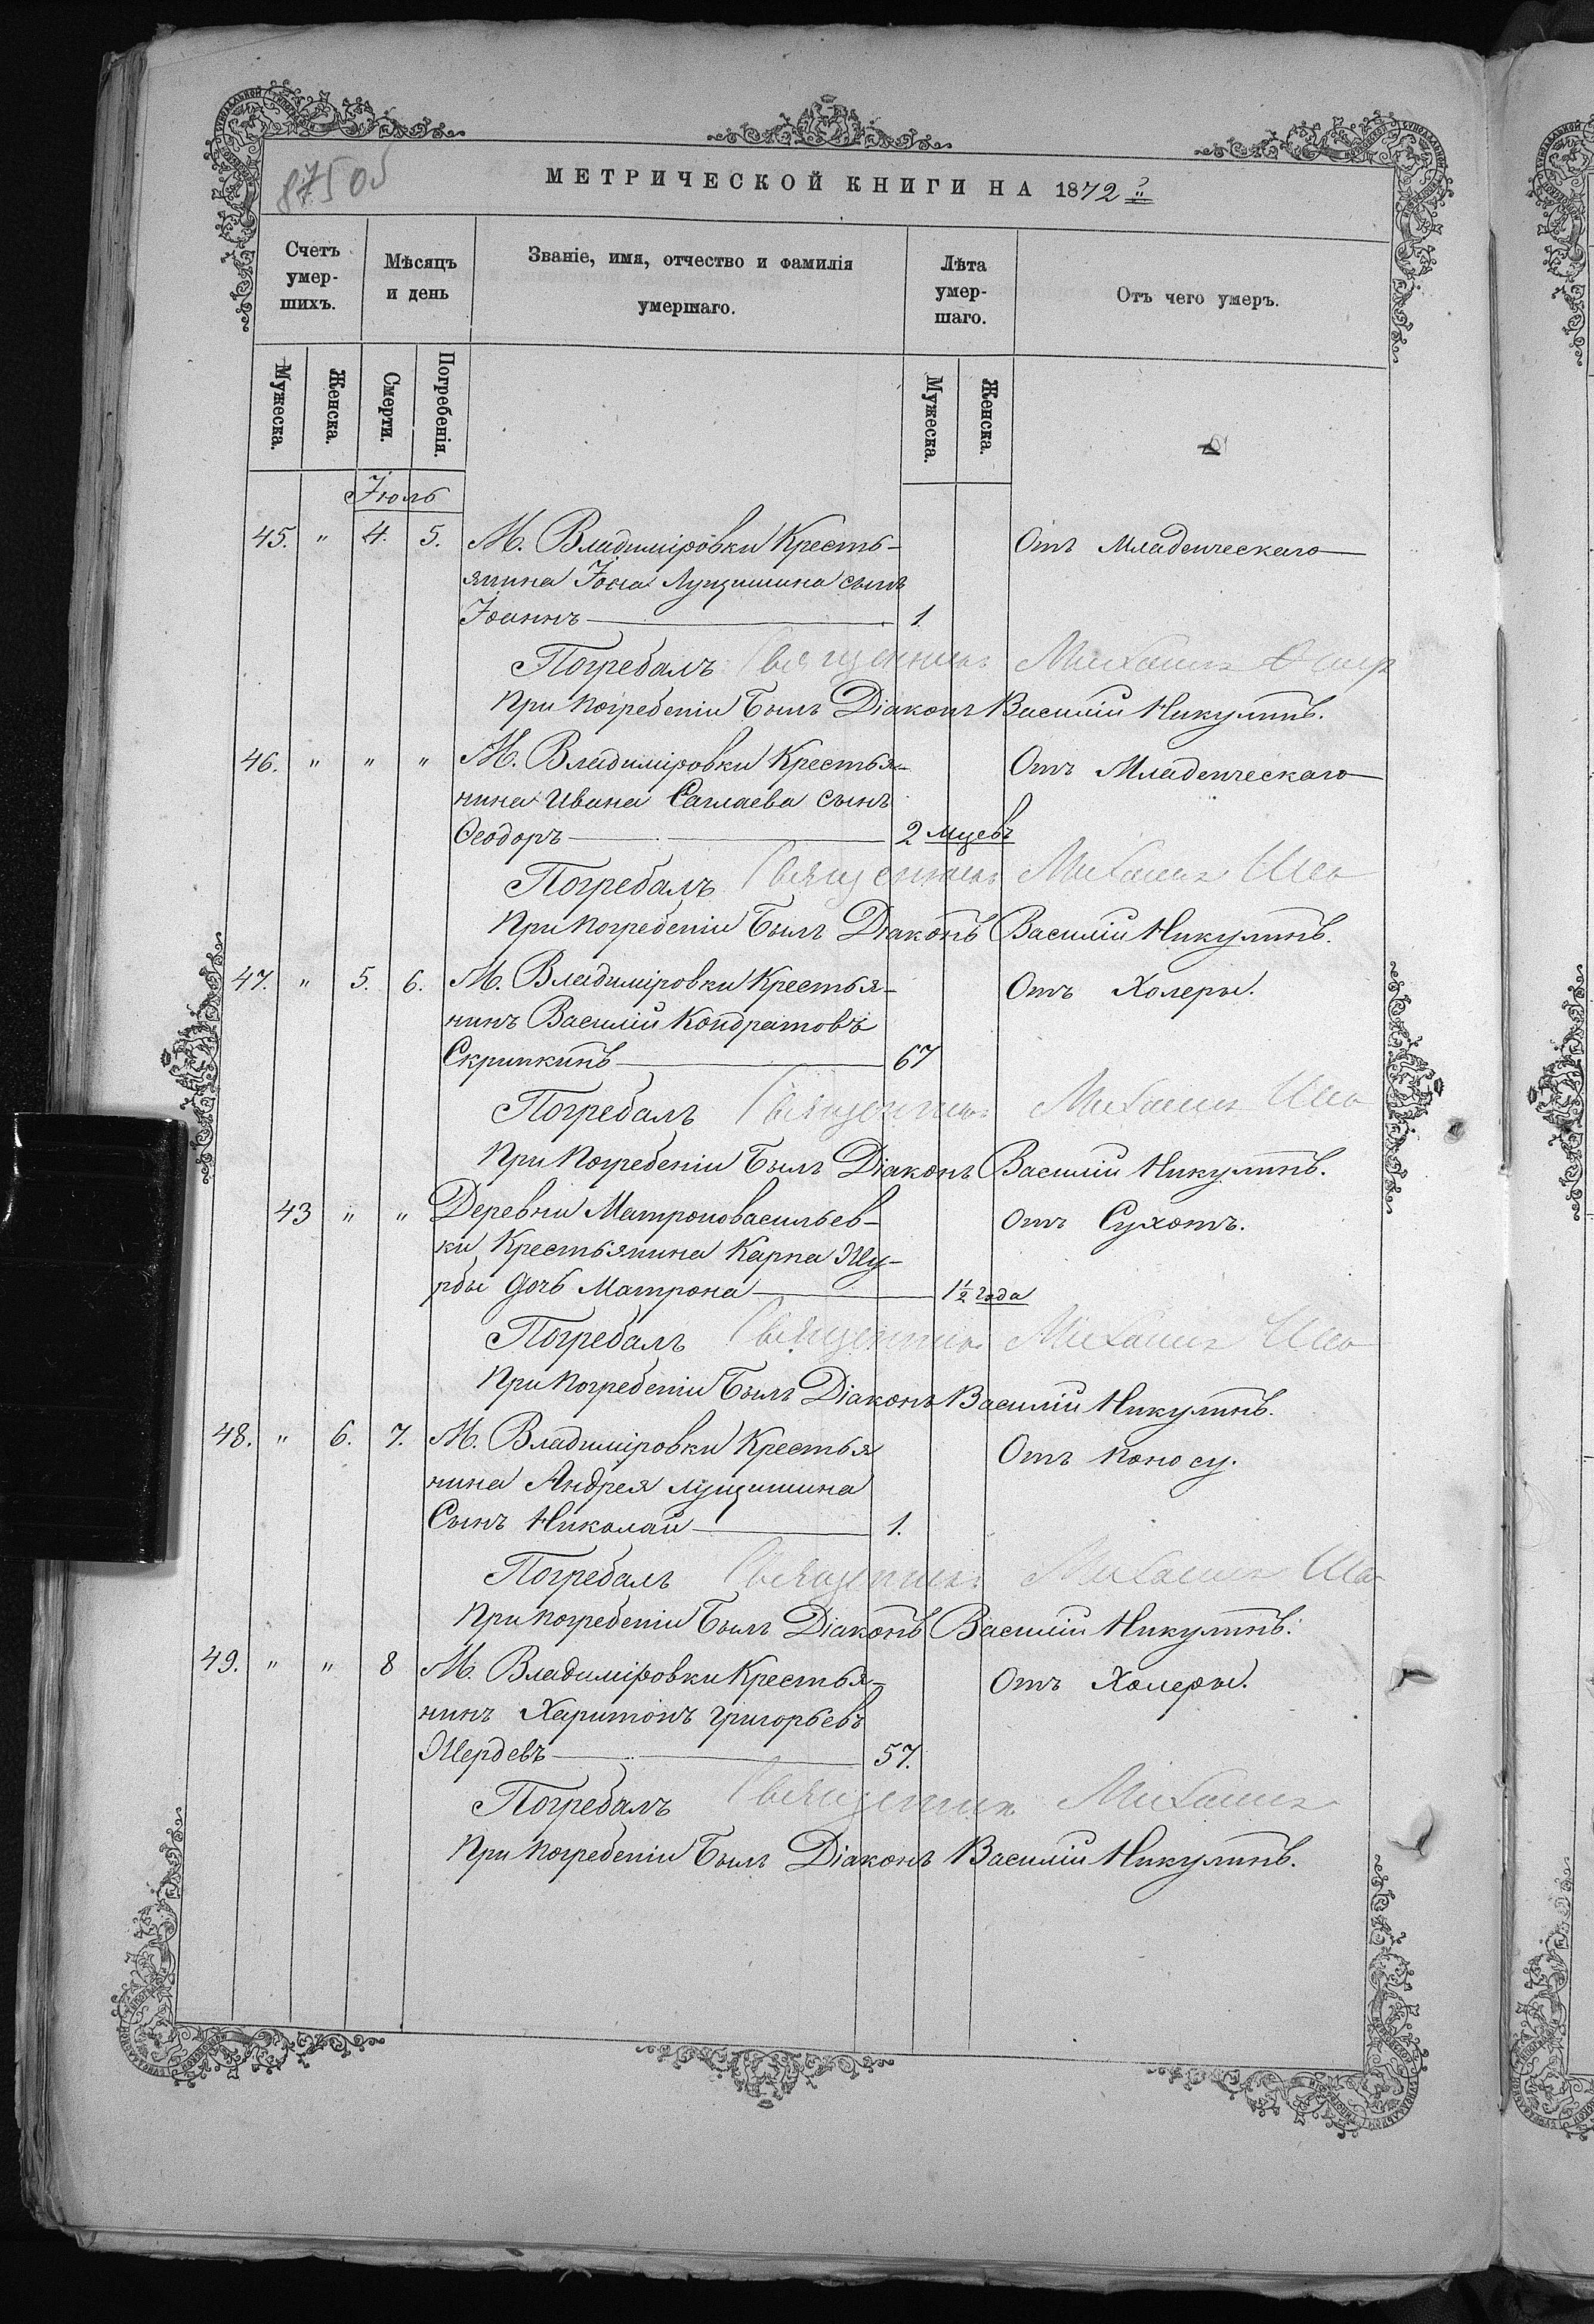 87505
МЕТРИЧЕСКОЙ КНИГИ НА 1872
Счетъ умер- шихъ.
Мѣсяцъ и день
Званіе, имя, отчество и фамилія умершаго.
Лѣта умер- шаго.
Отъ чего умеръ.
Мужеска. Женска. Смерти. Погребенія. Мужеска. Женска.
Іюль
45. " 4. 5. М. Владиміровки Кресть- Отъ Младенческаго
янина Іона Лущишина сынъ
Іоаннъ 1.
Погребалъ Священникъ Михаилъ
При погребеніи былъ Діаконъ Василій Никулинъ.
46. " " " М. Владиміровки Крестья- Отъ Младенческаго
нина Ивана Саглаева сынъ
Ѳеодоръ 2 мцевъ
Погребалъ Священникъ Михаилъ
При погребеніи былъ Діаконъ Василій Никулинъ.
47. " 5. 6. М. Владиміровки Крестья- Отъ Холеры.
нинъ Василій Кондратовъ
Скрипкинъ 67
Погребалъ Священникъ Михаилъ
При погребеніи былъ Діаконъ Василій Никулинъ.
43 " " Деревни Матроновасильев- Отъ Сухотъ.
ки Крестьянина Карпа Жу-
рбы дочь Матрона 1½ года
Погребалъ Священникъ Михаилъ
При погребеніи былъ Діаконъ Василій Никулинъ.
48. " 6. 7. М. Владиміровки Крестья Отъ поносу.
нина Андрея Лущишина
Сынъ Николай 1.
Погребалъ Священникъ Михаилъ
При погребеніи былъ Діаконъ Василій Никулинъ.
49. " " 8 М. Владиміровки Крестья- Отъ Холеры.
нинъ Харитонъ Григорьевъ
Жердевъ 57.
Погребалъ Священникъ Михаилъ
При погребеніи былъ Діаконъ Василій Никулинъ.